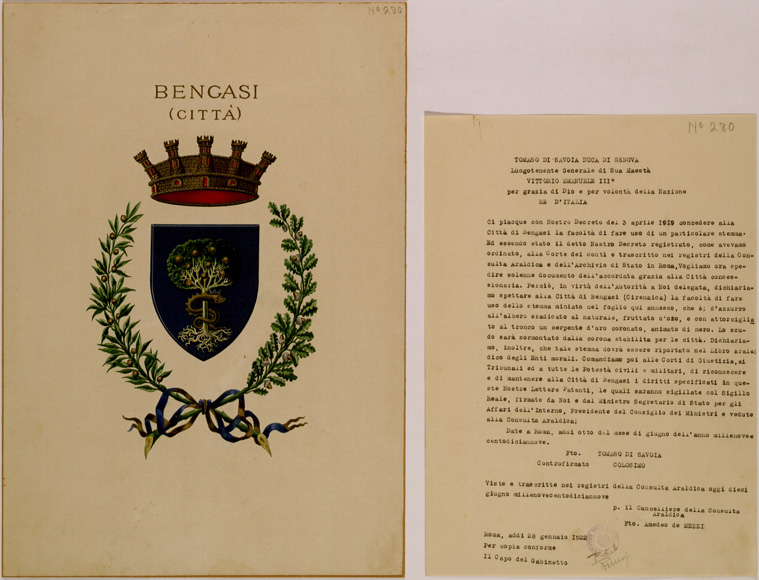 Nº 280
BENGASI
(CITTÀ)
Nº 280
TOMASO DI SAVOIA DUCA DI GENOVA
Luogotenente Generale di Sua Maestà
VITTORIO EMANUELE III°
per grazia di Dio e per volontà della Nazione
RE D'ITALIA
Ci piacque con Nostro Decreto del 3 aprile 1919 concedere alla
Città di Bengasi la facoltà di fare uso di un particolare stemma.
Ed essendo stato il detto Nostro Decreto registrato, come avevamo
ordinato, alla Corte dei conti e trascritto nei registri della Con-
sulta Araldica e dell'Archivio di Stato in Roma, Vogliamo ora spe-
dire solenne documento dell'accordata grazia alla Città conces-
sionaria. Perciò, in virtù dell'Autorità a Noi delegata, dichiaria-
mo spettare alla Città di Bengasi (Cirenaica) la facoltà di fare
uso dello stemma miniato nel foglio qui annesso, che è; d'azzurro
all'albero sradicato al naturale, fruttato d'oro, e con attorciglia
to al tronco un serpente d'oro coronato, animato di nero. Lo scu-
do sarà sormontato dalla corona stabilita per le città. Dichiaria-
mo, inoltre, che tale stemma dovrà essere riportato nel Libro aral-
dico degli Enti morali. Comandiamo poi alle Corti di Giustizia, ai
Tribunali ed a tutte le Potestà civili e militari, di riconoscere
e di mantenere alla Città di Bengasi i diritti specificati in que-
ste Nostre Lettere Patenti, le quali saranno sigillate col Sigillo
Reale, firmate da Noi e dal Ministro Segretario di Stato per gli
Affari dell'Interno, Presidente del Consiglio dei Ministri e vedute
alla Consulta Araldica;
Date a Roma, addì otto del mese di giugno dell'anno millenove=
centodiciannove.
Fto. TOMASO DI SAVOIA
Controfirmato COLOSIMO
Viste e trascritte nei registri della Consulta Araldica oggi dieci
giugno millenovecentodiciannove
p. il Cancelliere della Consulta
Araldica
Fto. Amedeo de
Roma, addì 28 gennaio 1922
Per copia conforme
Il Capo del Gabinetto